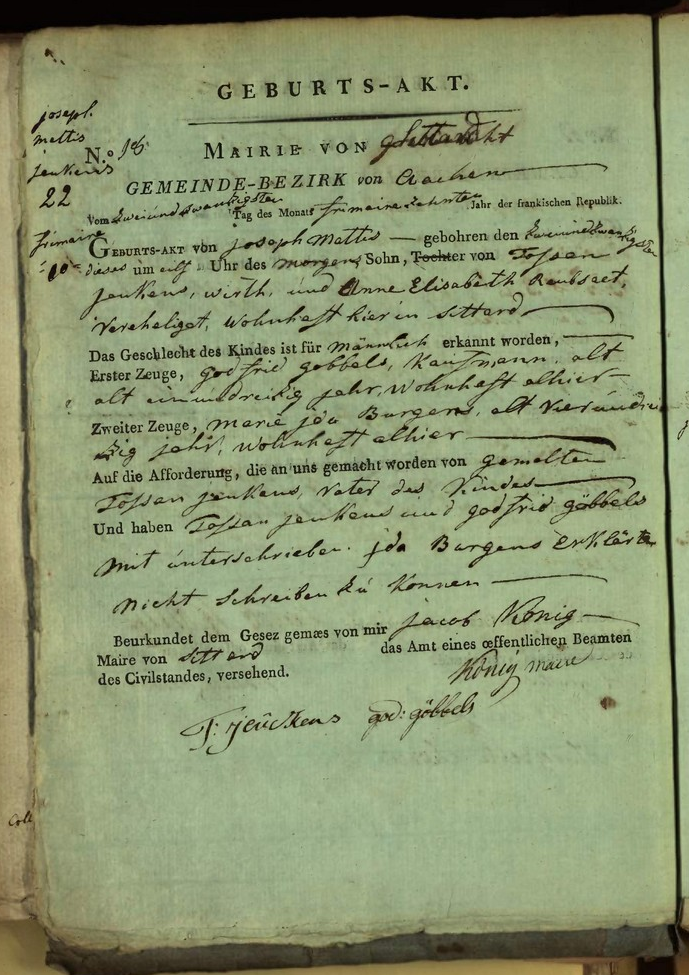 GEBURTS-AKT.
joseph.
mattis
jenkens
22
frimaire
10
N.º 18
MAIRIE VON Sittard
GEMEINDE-BEZIRK von Aachen
Vom zwei und zwanzigsten Tag des Monats frimaire zehnten Jahr der frankischen Republik.
GEBURTS-AKT von joseph Mattis gebohren den zwei und zwanzigsten
dieses um eilf Uhr des morgens Sohn, Tochter von Tossan
jenkens, wirth, und Anne Elisabeth
Vereheliget, wohnhaft hier in Sittard
Das Geschlecht des Kindes ist für männlich erkannt worden,
Erster Zeuge, godfrid gobbels, Kaufmann, alt
alt ein und dreizig jahr, wohnhaft alhier
Zweiter Zeuge, marie jda Burgens, alt vier und drei
zig jahr, wohnhaft alhier
Auf die Afforderung, die an uns gemacht worden von gemelten
Tossan jenkens, vater des Kindes
Und haben Tossan jenkens und godfrid göbbels
mit unterschrieben. jda Burgens erklärte
nicht schreiben zu konnen
Beurkundet dem Gesez gemæs von mir jacob König
Maire von Sittard das Amt eines œffentlichen Beamten
des Civilstandes, versehend.
König maire
T: jeuckens god: göbbels